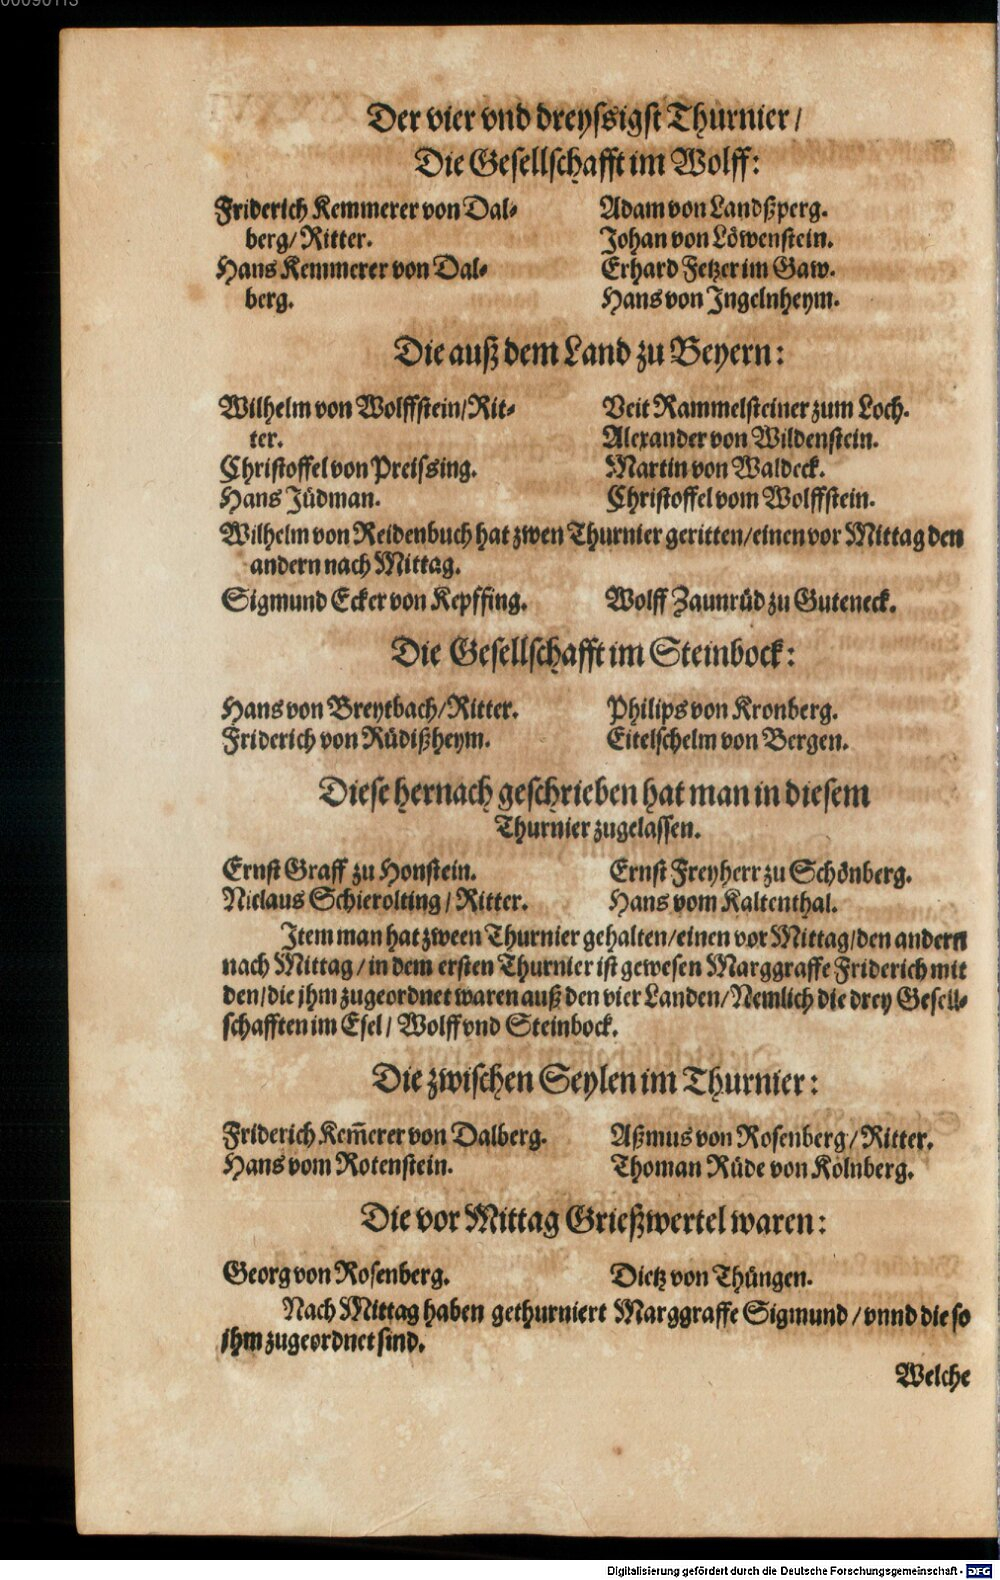 Der vier vnd dreyssigst Thurnier /
Die Gesellschafft im Wolff:
Friderich Kemmerer von Dal-
berg/ Ritter.
Hans Kemmerer von Dal-
berg.
Adam von Landßperg.
Johan von Löwenstein.
Erhard Fetzer im Gaw.
Hans von Ingelnheym.
Die auß dem Land zu Beyern:
Wilhelm von Wolffstein/Rit-
ter.
Christoffel von Preissing.
Hans Jüdman.
Veit Rammelsteiner zum Loch.
Alexander von Wildenstein.
Martin von Waldeck.
Christoffel vom Wolffstein.
Wilhelm von Reidenbuch hat zwen Thurnier geritten/einen vor Mittag den
andern nach Mittag.
Sigmund Ecker von Kepffing.
Wolff Zaunrüd zu Guteneck.
Die Gesellschafft im Steinbock:
Hans von Breytbach/Ritter.
Friderich von Rüdißheym.
Philips von Kronberg.
Eitelschelm von Bergen.
Diese hernach geschrieben hat man in diesem
Thurnier zugelassen.
Ernst Graff zu Honstein.
Niclaus Schierolting / Ritter.
Ernst Freyherr zu Schönberg.
Hans vom Kaltenthal.
Item man hat zween Thurnier gehalten/einen vor Mittag/den andern
nach Mittag / in dem ersten Thurnier ist gewesen Marggraffe Friderich mit
den/die jhm zugeordnet waren auß den vier Landen/Nemlich die drey Gesell-
schafften im Esel / Wolff vnd Steinbock.
Die zwischen Seylen im Thurnier:
Friderich Kem̃erer von Dalberg.
Hans vom Rotenstein.
Aßmus von Rosenberg/ Ritter.
Thoman Rüde von Kolnberg.
Die vor Mittag Grießwertel waren:
Georg von Rosenberg.
Dietz von Thüngen.
Nach Mittag haben gethurniert Marggraffe Sigmund / vnnd die so
jhm zugeordnet sind.
Welche
Digitalisierung gefördert durch die Deutsche Forschungsgemeinschaft - DFG